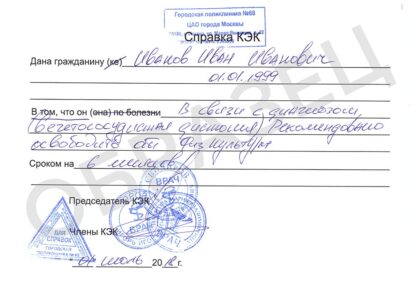 Городская поликлиника №68
ЦАО города Москвы
Справка КЭК
Дана гражданину (ке) Иванов Иван Иванович
01.01.1999
В том, что он (она) по болезни В связи с диагнозом
(вегетососудистая дистония) Рекомендовано
освободить от физкультуры
Сроком на 6 месяцев
ОБРАЗЕЦ
Председатель КЭК
ВРАЧ
Члены КЭК
ВРАЧ
ДЛЯ
СПРАВОК
ГОРОДСКАЯ
июль 20